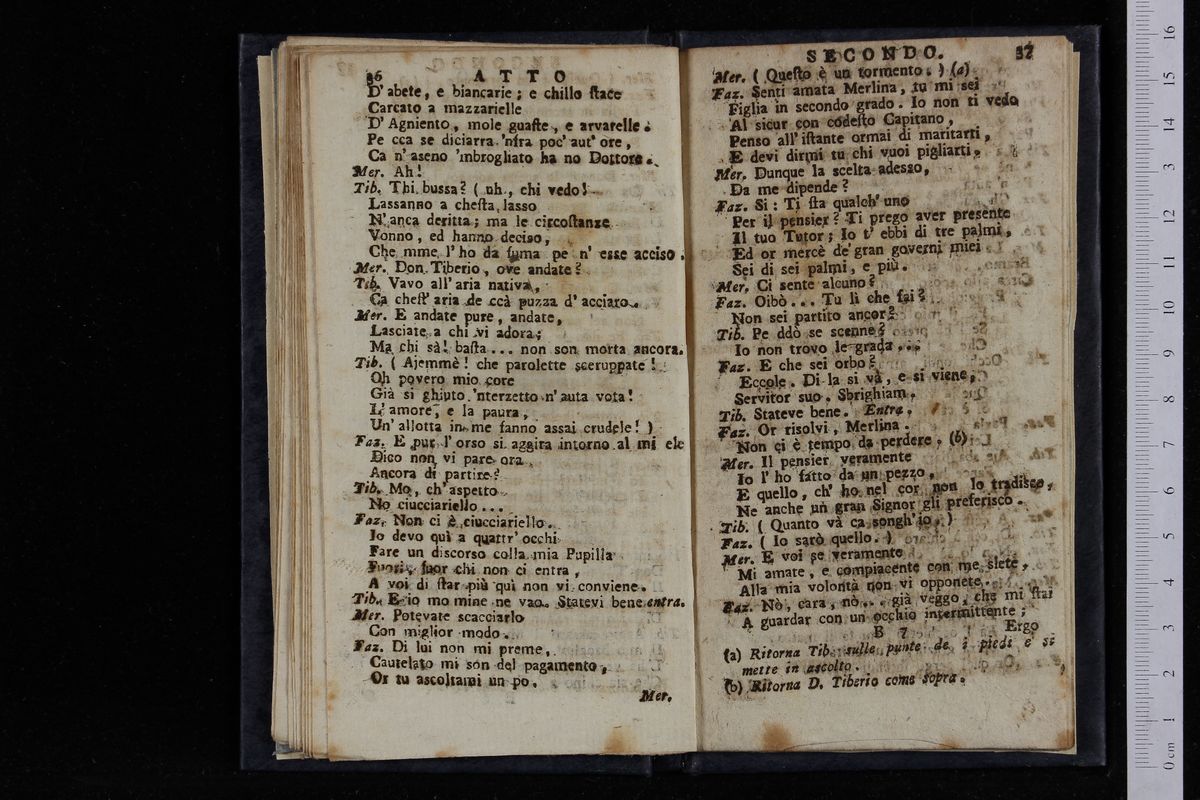 36 ATTO
D'abete, e biancarie; e chillo ſtace
Carcato a mazzarielle
D'Agniento, mole guaſte, e arvarelle.
Pe cca se diciarra 'nfra poc' aut' ore,
Ca n' aseno 'mbrogliato ha no Dottore.
Mer. Ah!
Tib. Thi bussa? ( uh, chi vedo!
Lassanno a cheſta lasso
N'anca deritta; ma le circoſtanze
Vonno, ed hanno deciso,
Che mme l'ho da fuma pe n' esse acciso.
Mer. Don Tiberio, ove andate?
Tib. Vavo all'aria nativa,
Ca cheſt' aria de ccà puzza d'acciaro.
Mer. E andate pure, andate,
Lasciate a chi vi adora;
Ma chi sà! baſta... non son morta ancora.
Tib. ( Ajemmè! che parolette sceruppate!
Oh povero mio core
Già si ghiuto 'nterzetto n'auta vota!
L'amore, e la paura,
Un'allotta in me fanno assai crudele! )
Faz. E pur l'orso si aggira intorno al mi ele
Dico non vi pare ora
Ancora di partire?
Tib. Mo, ch'aspetto
No ciucciariello...
Faz. Non ci è ciucciariello.
Io devo quì a quattr' occhi
Fare un discorso colla mia Pupilla
Fuori, fuor chi non ci entra,
A voi di ſtar più quì non vi conviene.
Tib. E io mo mine ne vao. Statevi bene entra.
Mer. Potevate scacciarlo
Con miglior modo.
Faz. Di lui non mi preme,
Cautelato mi son del pagamento,
Or tu ascoltami un po.
Mer.
SECONDO. 37
Mer. ( Queſto è un tormento. ) (a)
Faz. Senti amata Merlina, tu mi sei
Figlia in secondo grado. Io non ti vedo
Al sicur con codeſto Capitano,
Penso all'iſtante ormai di maritarti,
E devi dirmi tu chi vuoi pigliarti.
Mer. Dunque la scelta adesso,
Da me dipende?
Faz. Si: Ti ſta qualch' uno
Per il pensier? Ti prego aver presente
Il tuo Tutor; Io t'ebbi di tre palmi,
Ed or mercè de' gran governi miei
Sei di sei palmi, e più.
Mer. Ci sente alcuno?
Faz. Oibò... Tu lì che fai?
Non sei partito ancor?
Tib. Pe ddò se scenne?
Io non trovo le grada...
Faz. E che sei orbo?
Eccole. Di la si và, e si viene,
Servitor suo. Sbrighiam.
Tib. Stateve bene. Entra.
Faz. Or risolvi, Merlina.
Non ci è tempo da perdere. (b)
Mer. Il pensier veramente
Io l'ho fatto da un pezzo,
E quello, ch' ho nel cor non lo tradisco,
Ne anche un gran Signor gli preferisco.
Tib. ( Quanto và ca songh'io. )
Faz. ( Io sarò quello. )
Mer. E voi se veramente
Mi amate, e compiacente con me siete,
Alla mia volontà non vi opponete.
Faz. Nò, cara, nò... già veggo, che mi ſtai
A guardar con un occhio intermittente;
B 7 Ergo
(a) Ritorna Tib. sulle punte de i piedi e si
mette in ascolto.
(b) Ritorna D. Tiberio come sopra.
0 cm 1 2 3 4 5 6 7 8 9 10 11 12 13 14 15 16